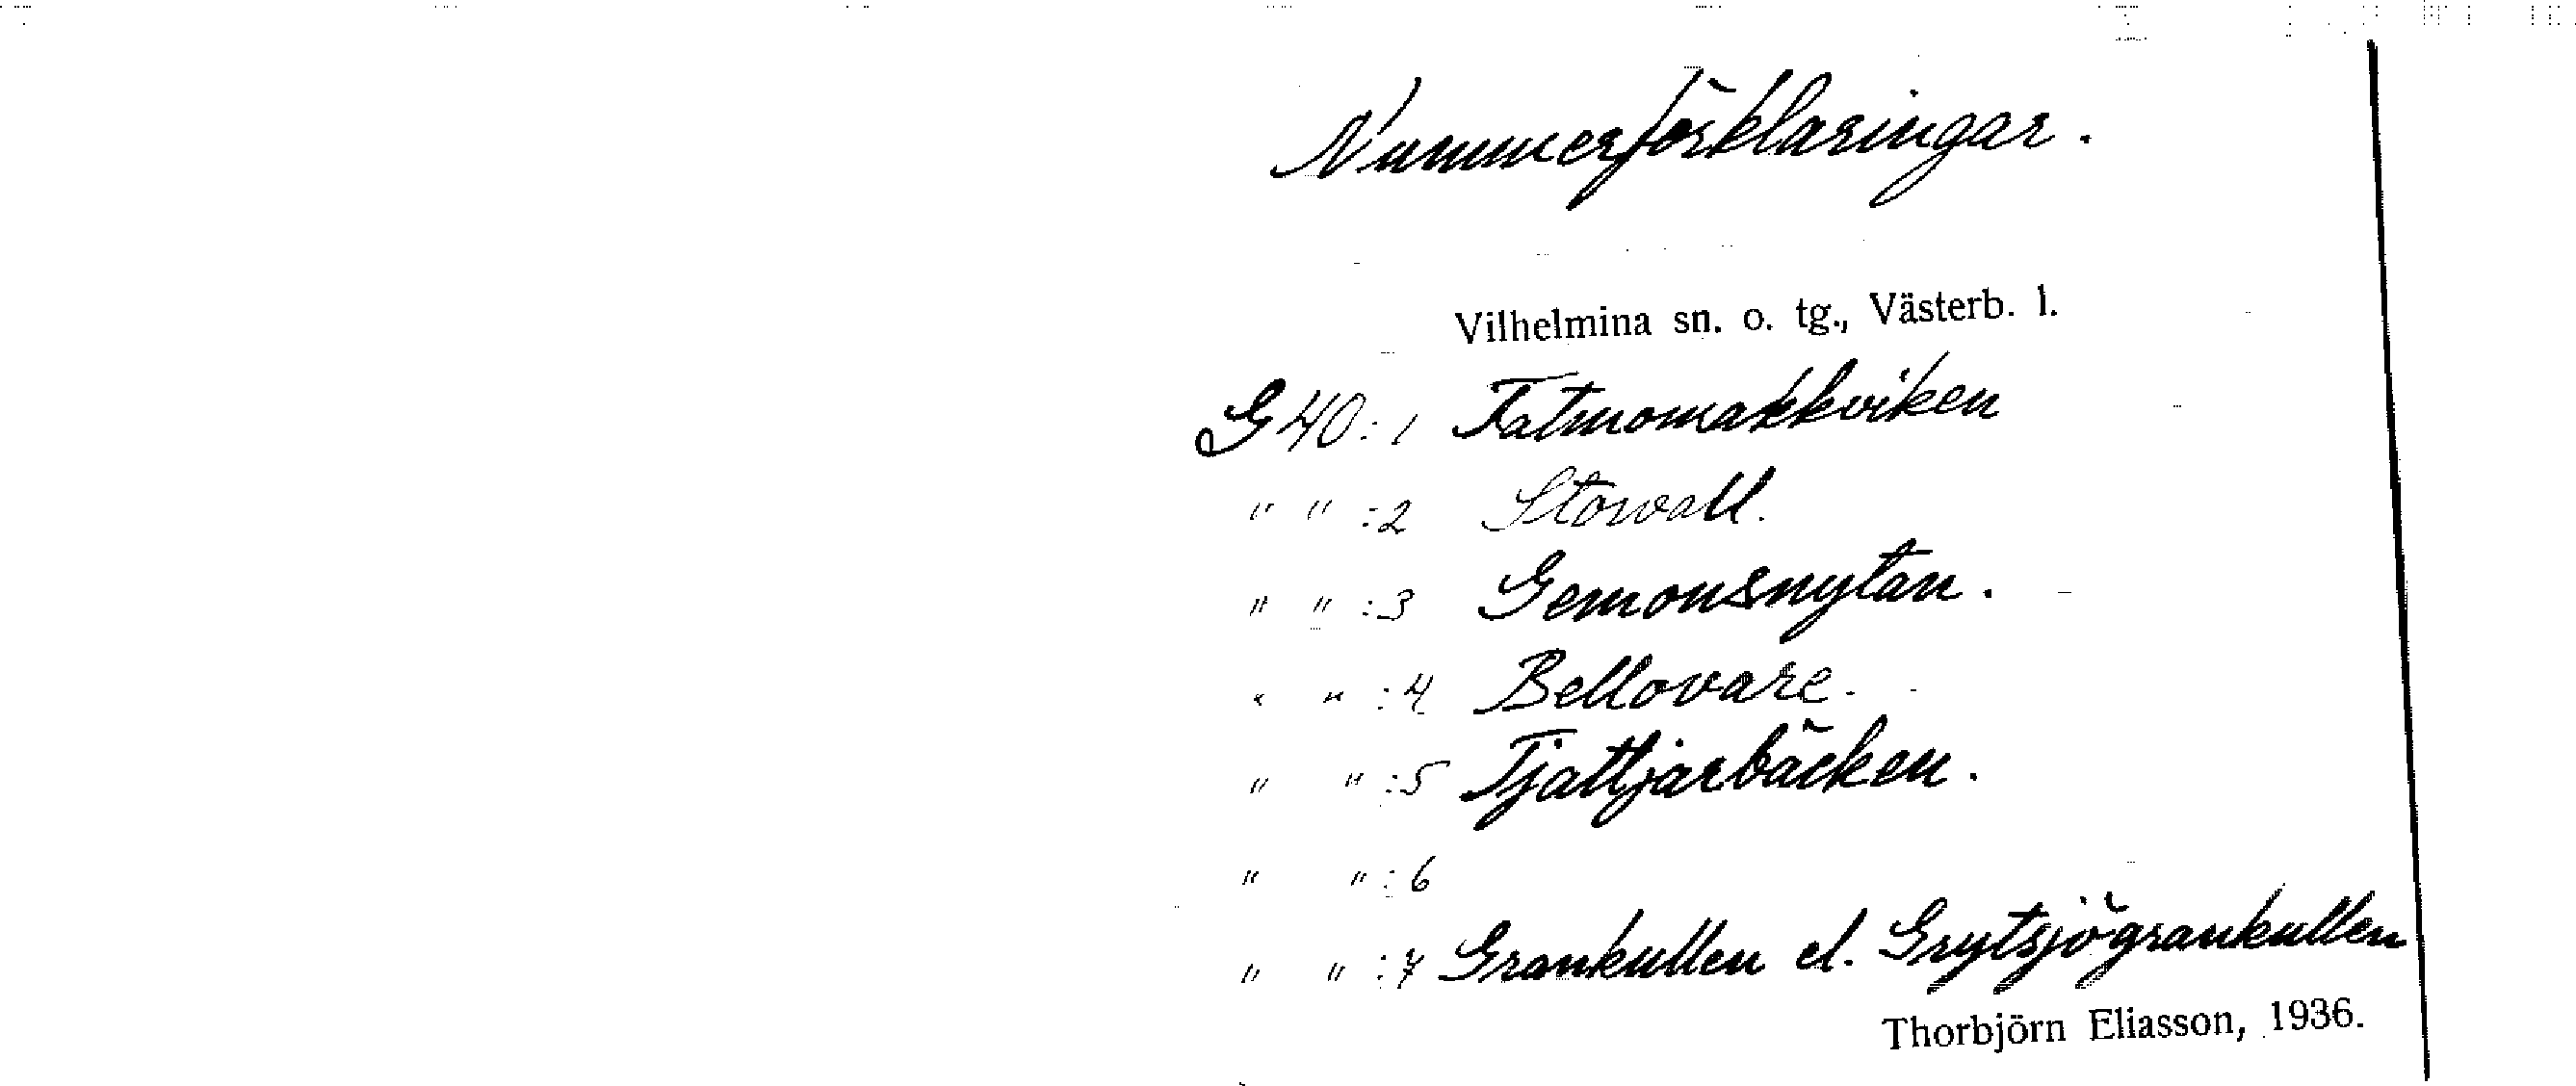 Nummerförklaringar.
Vilhelmina sn. o. tg., Västerb. l.
G 40:1 Fatmomakkviken
" " :2 Storvall.
" " :3 Gemonsnytan.
" " :4 Bellovare.
" " :5 Tjattjarbäcken.
" " :6
" " :7 Grankullen el. Grytsjögrankullen
Thorbjörn Eliasson, 1936.